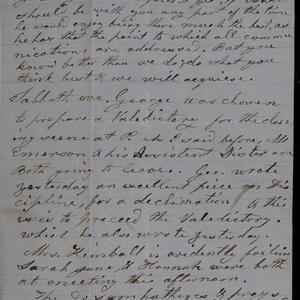 should be with you any of the time
he would enjoy being this much the best, as
he has that the point to which all commu
nications are addressed. But you
know better than we do, do what you
think best & we will acquiesce.
Sabbath eve. George was chosen
to prepare a Valedictory for the clos
ing scene at P. as I said before, Mr
Emerson & his Assistant Sister are
Both going to leave. Geo. wrote
yesterday an excellent piece on Dis
cipline, for a declamation & this
is to proceed the Valedictory.
which he also wrote yesterday.
Mrs. Kimball is evidently failing
Sarah Jane & Hannah were both
at meeting this afternoon.
The Dr. sympathizes & prays